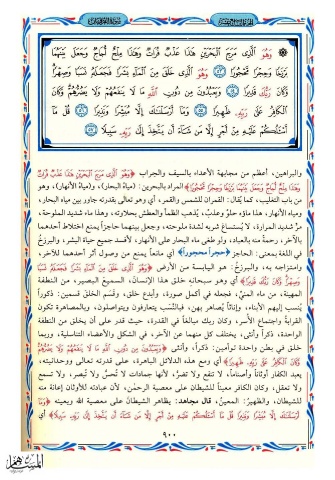 ۞ وَهُوَ ٱلَّذِى مَرَجَ ٱلْبَحْرَيْنِ هَٰذَا عَذْبٌ فُرَاتٌ وَهَٰذَا مِلْحٌ أُجَاجٌ وَجَعَلَ بَيْنَهُمَا
بَرْزَخًا وَحِجْرًا مَّحْجُورًا ٥٣ وَهُوَ ٱلَّذِى خَلَقَ مِنَ ٱلْمَآءِ بَشَرًا فَجَعَلَهُۥ نَسَبًا وَصِهْرًا
وَكَانَ رَبُّكَ قَدِيرًا ٥٤ وَيَعْبُدُونَ مِن دُونِ ٱللَّهِ مَا لَا يَنفَعُهُمْ وَلَا يَضُرُّهُمْ وَكَانَ
ٱلْكَافِرُ عَلَىٰ رَبِّهِۦ ظَهِيرًا ٥٥ وَمَآ أَرْسَلْنَٰكَ إِلَّا مُبَشِّرًا وَنَذِيرًا ٥٦ قُلْ مَآ
أَسْـَٔلُكُمْ عَلَيْهِ مِنْ أَجْرٍ إِلَّا مَن شَآءَ أَن يَتَّخِذَ إِلَىٰ رَبِّهِۦ سَبِيلًا ٥٧
والبراهين، أعظم من مجابهة الأعداء بالسيف والحراب ﴿وَهُوَ ٱلَّذِى مَرَجَ ٱلْبَحْرَيْنِ هَٰذَا عَذْبٌ فُرَاتٌ
وَهَٰذَا مِلْحٌ أُجَاجٌ وَجَعَلَ بَيْنَهُمَا بَرْزَخًا وَحِجْرًا مَّحْجُورًا﴾ المراد بالبحرين: (مياه البحار)، و(مياه الأنهار)، وهو
من باب التغليب، كما يُقال: القمران للشمس والقمر، أي هو تعالى بقدرته جاور بين مياه البحار،
ومياه الأنهار، هذا ماؤه حلوٌ وعذبٌ، يُذهب الظمأ والعطش بحلاوته، وهذا ماء شديد الملوحة،
مرٌّ شديد المرارة، لا يُستساغ شربه لشدة ملوحته، وجعل بينهما حاجزاً يمنع اختلاط أحدهما
بالآخر، رحمةً منه بالعباد، ولو طغى ماء البحار على الأنهار، لأفسد جميع حياة البشر، والبرزخُ
في اللغة بمعنى: الحاجز ﴿حِجْراً محجوراً﴾ أي مانعاً يمنع من وصول أثر أحدهما للآخر،
وامتزاجه به، والبرزخ: هو اليابسة من الأرض ﴿وَهُوَ ٱلَّذِى خَلَقَ مِنَ ٱلْمَآءِ بَشَرًا فَجَعَلَهُۥ نَسَبًا
وَصِهْرًا وَكَانَ رَبُّكَ قَدِيرًا﴾ أي وهو سبحانه خلق هذا الإنسان، السميع البصير، من النطفة
المهينة، من ماء المنيّ، فجعله في أكمل صورة، وأبدع خلق، وقسم الخلق قسمين: ذكوراً
يُنسب إليهم الأبناء، وإناثاً يُصاهر بهن، فبالنسب يتعارفون ويتواصلون، وبالمصاهرة تكون
القرابة واجتماع الأسر، وكان ربك مبالغاً في القدرة، حيث قدر على أن يخلق من النطفة
الواحدة، ذكراً وأنثى، يختلف كل منهما عن الآخر، في الشكل والأعضاء التناسلية، وربما
خلق في بطنٍ واحدة توأمين: ذكراً، وأنثى ﴿وَيَعْبُدُونَ مِن دُونِ ٱللَّهِ مَا لَا يَنفَعُهُمْ وَلَا يَضُرُّهُمْ
وَكَانَ ٱلْكَافِرُ عَلَىٰ رَبِّهِۦ ظَهِيرًا﴾ أي ومع هذه الدلائل الباهرة، على قدرته تعالى ووحدانيته،
يعبد الكفار أوثاناً وأصناماً، لا تنفع ولا تضرُّ، لأنها جمادات لا تُحسُّ ولا تُبصر، ولا تسمع
ولا تعقل، وكان الكافر معيناً للشيطان على معصية الرحمٰن، لأن عبادته للأوثان إعانة منه
للشيطان، والظهيرُ: المعينُ، قال مجاهد: يظاهر الشيطان على معصية الله ويعينه ﴿وَمَآ
أَرْسَلْنَٰكَ إِلَّا مُبَشِّرًا وَنَذِيرًا قُلْ مَآ أَسْـَٔلُكُمْ عَلَيْهِ مِنْ أَجْرٍ إِلَّا مَن شَآءَ أَن يَتَّخِذَ إِلَىٰ رَبِّهِۦ سَبِيلًا﴾ أي
٩٠٠